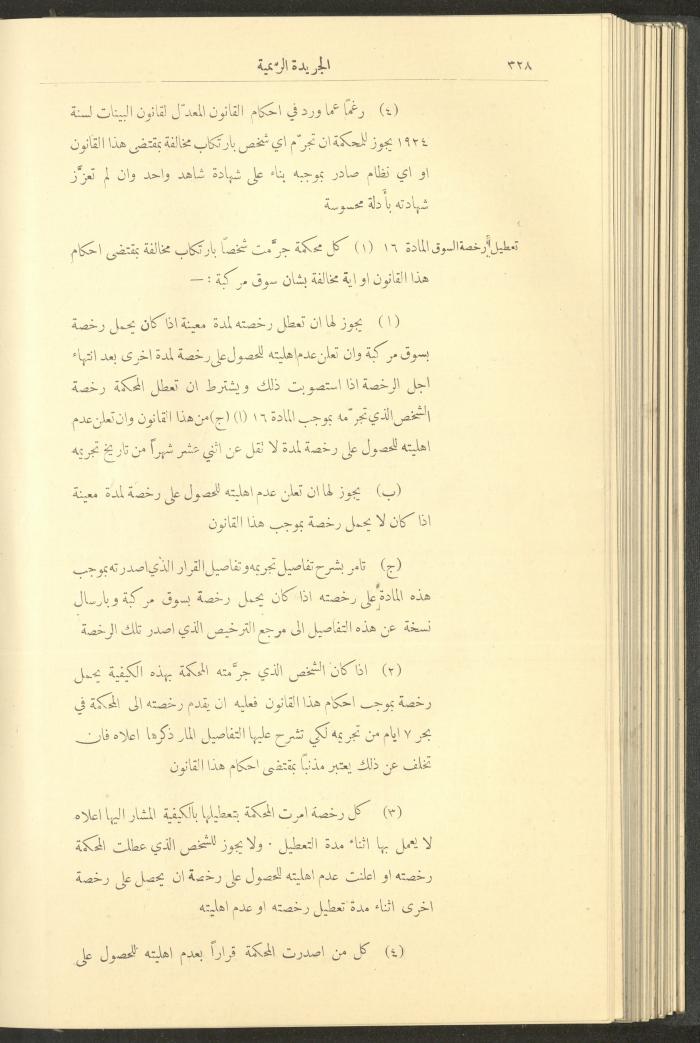 ٣٢٨ الجريدة الرسمية
(٤) رغمًا عما ورد في احكام القانون المعدّل لقانون البينات لسنة
١٩٢٤ يجوز للمحكمة ان تجرّم اي شخص بارتكاب مخالفة بمقتضى هذا القانون
او اي نظام صادر بموجبه بناء على شهادة شاهد واحد وان لم تعزَّز
شهادته بأدلة محسوسة
تعطيل رخصة السوق المادة ١٦ (١) كل محكمة جرَّمت شخصاً بارتكاب مخالفة بمقتضى احكام
هذا القانون او اية مخالفة بشان سوق مركبة : —
(١) يجوز لها ان تعطل رخصته لمدة معينة اذا كان يحمل رخصة
بسوق مركبة وان تعلن عدم اهليته للحصول على رخصة لمدة اخرى بعد انتهاء
اجل الرخصة اذا استصوبت ذلك ويشترط ان تعطل المحكمة رخصة
الشخص الذي تجرّمه بموجب المادة ١٦ (١) (ج) من هذا القانون وان تعلن عدم
اهليته للحصول على رخصة لمدة لا تقل عن اثني عشر شهراً من تاريخ تجريمه
(ب) يجوز لها ان تعلن عدم اهليته للحصول على رخصة لمدة معينة
اذا كان لا يحمل رخصة بموجب هذا القانون
(ج) تامر بشرح تفاصيل تجريمه وتفاصيل القرار الذي اصدرته بموجب
هذه المادة على رخصته اذا كان يحمل رخصة بسوق مركبة وبارسال
نسخة عن هذه التفاصيل الى موجع الترخيص الذي اصدر تلك الرخصة
(٢) اذا كان الشخص الذي جرَّمته المحكمة بهذه الكيفية يحمل
رخصة بموجب احكام هذا القانون فعليه ان يقدم رخصته الى المحكمة في
بحر ٧ ايام من تجريمه لكي تشرح عليها التفاصيل المار ذكرها اعلاه فان
تخلف عن ذلك يعتبر مذنبًا بمقتضى احكام هذا القانون
(٣) كل رخصة امرت المحكمة بتعطيلها بالكيفية المشار اليها اعلاه
لا يعمل بها اثناء مدة التعطيل . ولا يجوز للشخص الذي عطلت المحكمة
رخصته او اعلنت عدم اهليته للحصول على رخصة ان يحصل على رخصة
اخرى اثناء مدة تعطيل رخصته او عدم اهليته
(٤) كل من اصدرت المحكمة قراراً بعدم اهليته للحصول على